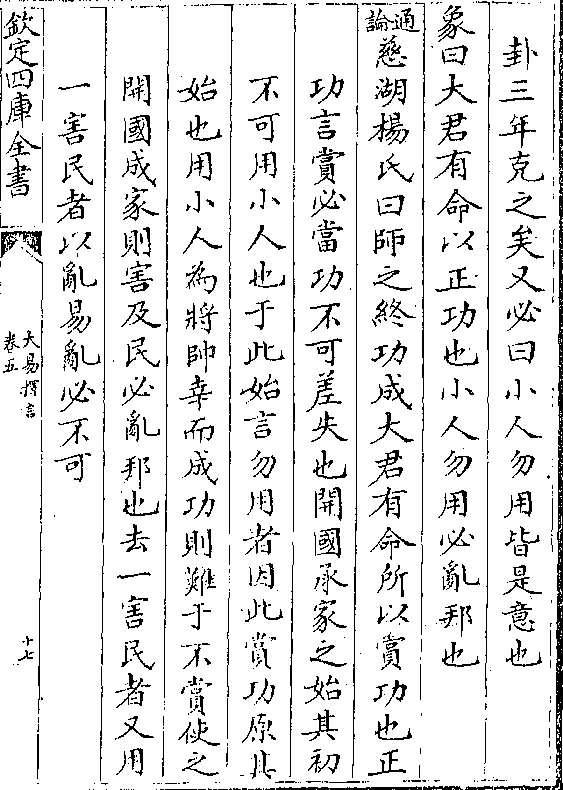 卦三年克之矣又必曰小人勿用皆是意也
象曰大君有命以正功也小人勿用必亂邦也
通論慈湖楊氏曰師之終功成大君有命所以賞功也正
功言賞必當功不可差失也開國承家之始其初
不可用小人也于此始言勿用者因此賞功原其
始也用小人為將帥幸而成功則難于不賞使之
開國成家則害及民必亂邦也去一害民者又用
一害民者以亂易亂必不可
欽定四庫全書
大易擇言
卷五
十七